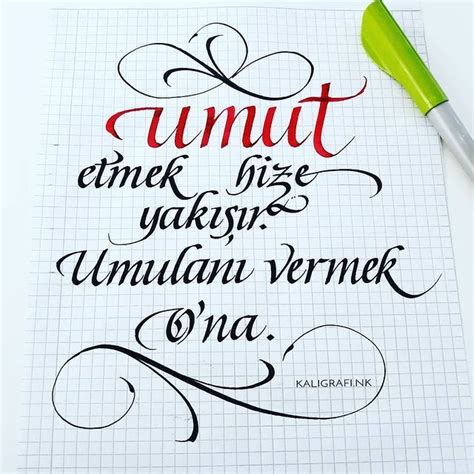 umut
etmek bize
yakışır.
Umulanı vermek
O'na.
KALIGRAFI.NK